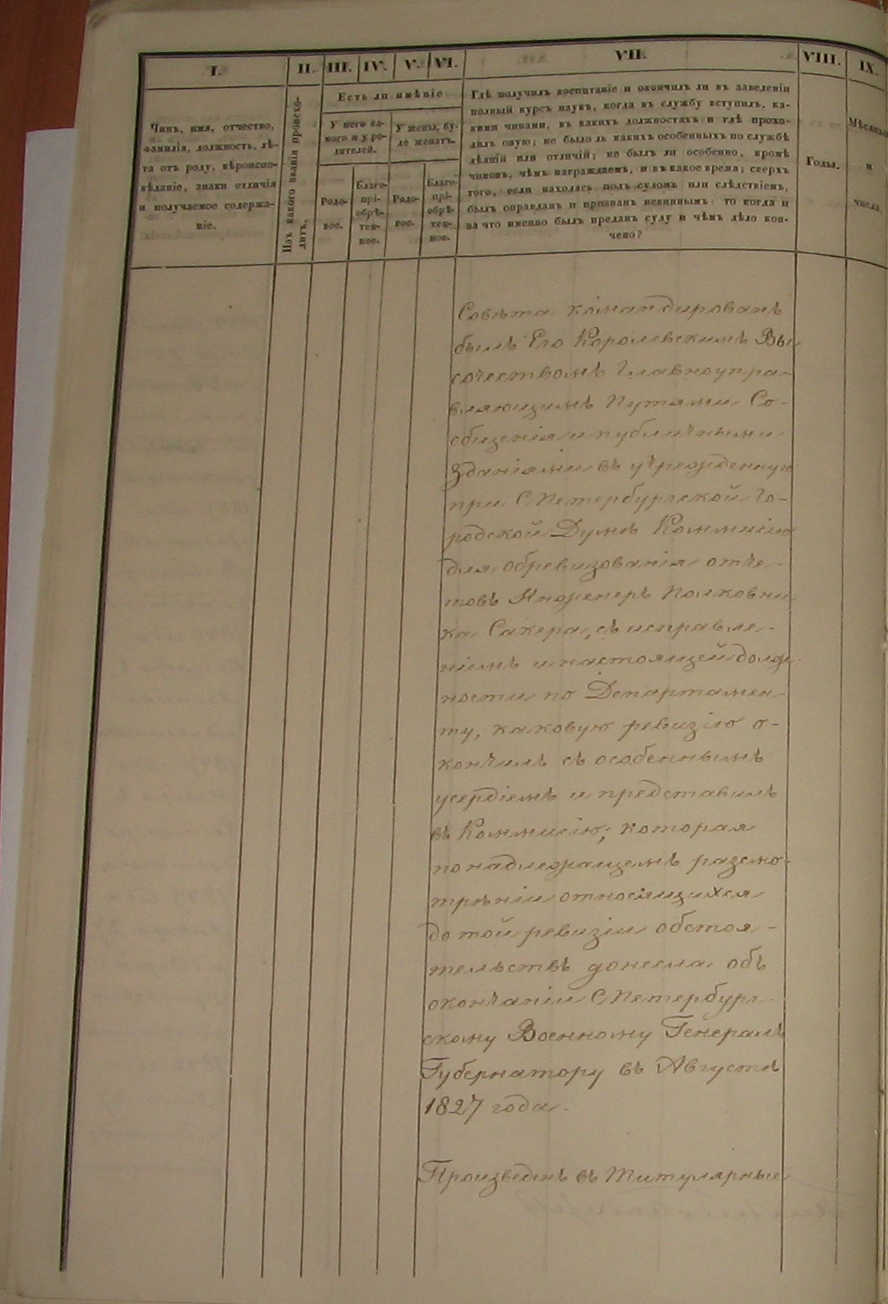 I.
II.
III.
IV.
V.
VI.
VII.
VIII.
IX.
Чинъ, имя, отчество,
фамилія, должность, лѣ-
та отъ роду, вѣроиспо-
вѣданіе, знаки отличія
и получаемое содержа-
ніе.
Изъ какого званія происхо-
дитъ.
Есть ли имѣніе
У него са-
мого и у ро-
дителей.
У жены, бу-
де женатъ.
Родо-
вое.
Благо-
прі-
обрѣ-
тен-
ное.
Родо-
вое.
Благо-
прі-
обрѣ-
тен-
ное.
Гдѣ получилъ воспитаніе и окончилъ ли въ заведеніи
полный курсъ наукъ, когда въ службу вступилъ, ка-
кими чинами, въ какихъ должностяхъ и гдѣ прохо-
дилъ оную; не было ль какихъ особенныхъ по службѣ
дѣяній или отличій; не былъ ли особенно, кромѣ
чиновъ, чѣмъ награждаемъ, и въ какое время; сверхъ
того, если находясь подъ судомъ или слѣдствіемъ,
былъ оправданъ и признанъ невиннымъ: то когда и
за что именно былъ преданъ суду и чѣмъ дѣло кон-
чено?
Годы.
Мѣсяцы
и
числа.
Совѣта командированъ
былъ Его Королевскимъ Вы-
сочествомъ Главноупра-
вляющимъ Путями Со-
общенія и публичными
зданіями въ учрежденную
при С Петербургской Го-
родской Думѣ Коммисію
для обревизованія отче-
товъ Инженеръ Полковни-
ка Сакера, съ исправле-
ніемъ и настоящей долж-
ности по Департамен-
ту, каковую ревизію о-
кончилъ съ особеннымъ
усердіемъ и представилъ
въ Коммисію; которая
по надлежащемъ разсмо-
трѣніи относящихся
до той ревизіи обстоя-
тельствъ донесла объ
окончаніи С Петербург-
скому Военному Генералъ
Губернатору въ Августѣ
1827 года.
Произведенъ въ Титулярные